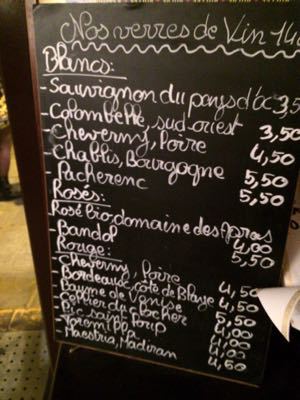 Nos verres de Vin 14c
Blancs:
-Sauvignon du pays d'oc 3,5
-Colombelle sud-ouest 3,50
-Cheverny, Loire 4,50
-Chablis, Bourgogne 5,50
-Pacherenc 5,50
Rosés:
-Rosé Bio, domaine des 4,00
-Bandol 5,50
Rouge:
-Cheverny, Loire 4,50
-Bordeaux, côte de Blaye 4,50
-Baume de Venise 5,50
-Cellier du clocher 4,00
-Pic saint Loup 4,00
4,00
-Maestria, Madiran 4,60